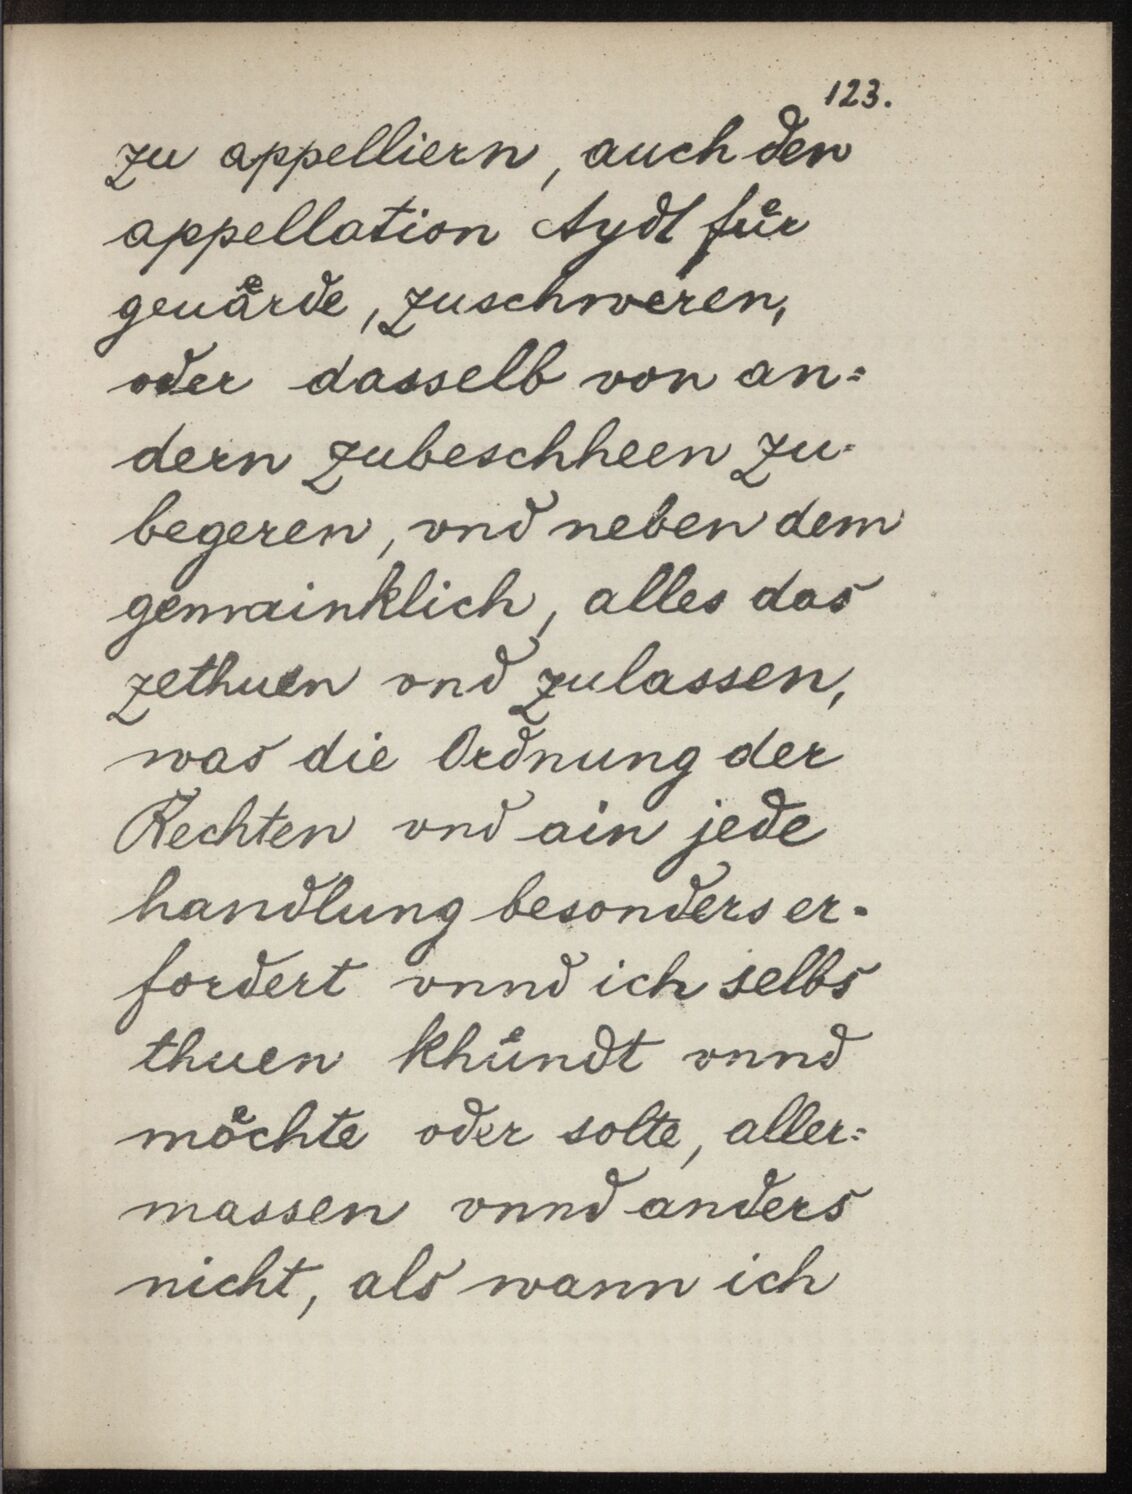 123.
zu appelliern, auch den
appellation Aydt fuͤr
geuaͤrde, zuschweren,
oder dasselb von an=
dern zubeschheen zu-
begeren, vnd neben dem
gemainklich, alles das
zethuen vnd zulassen,
was die Ordnung der
Rechten vnd ain jede
handlung besonders er-
fordert vnnd ich selbs
thuen khuͤndt vnnd
moͤchte oder solte, aller=
massen vnnd anders
nicht, als wann ich